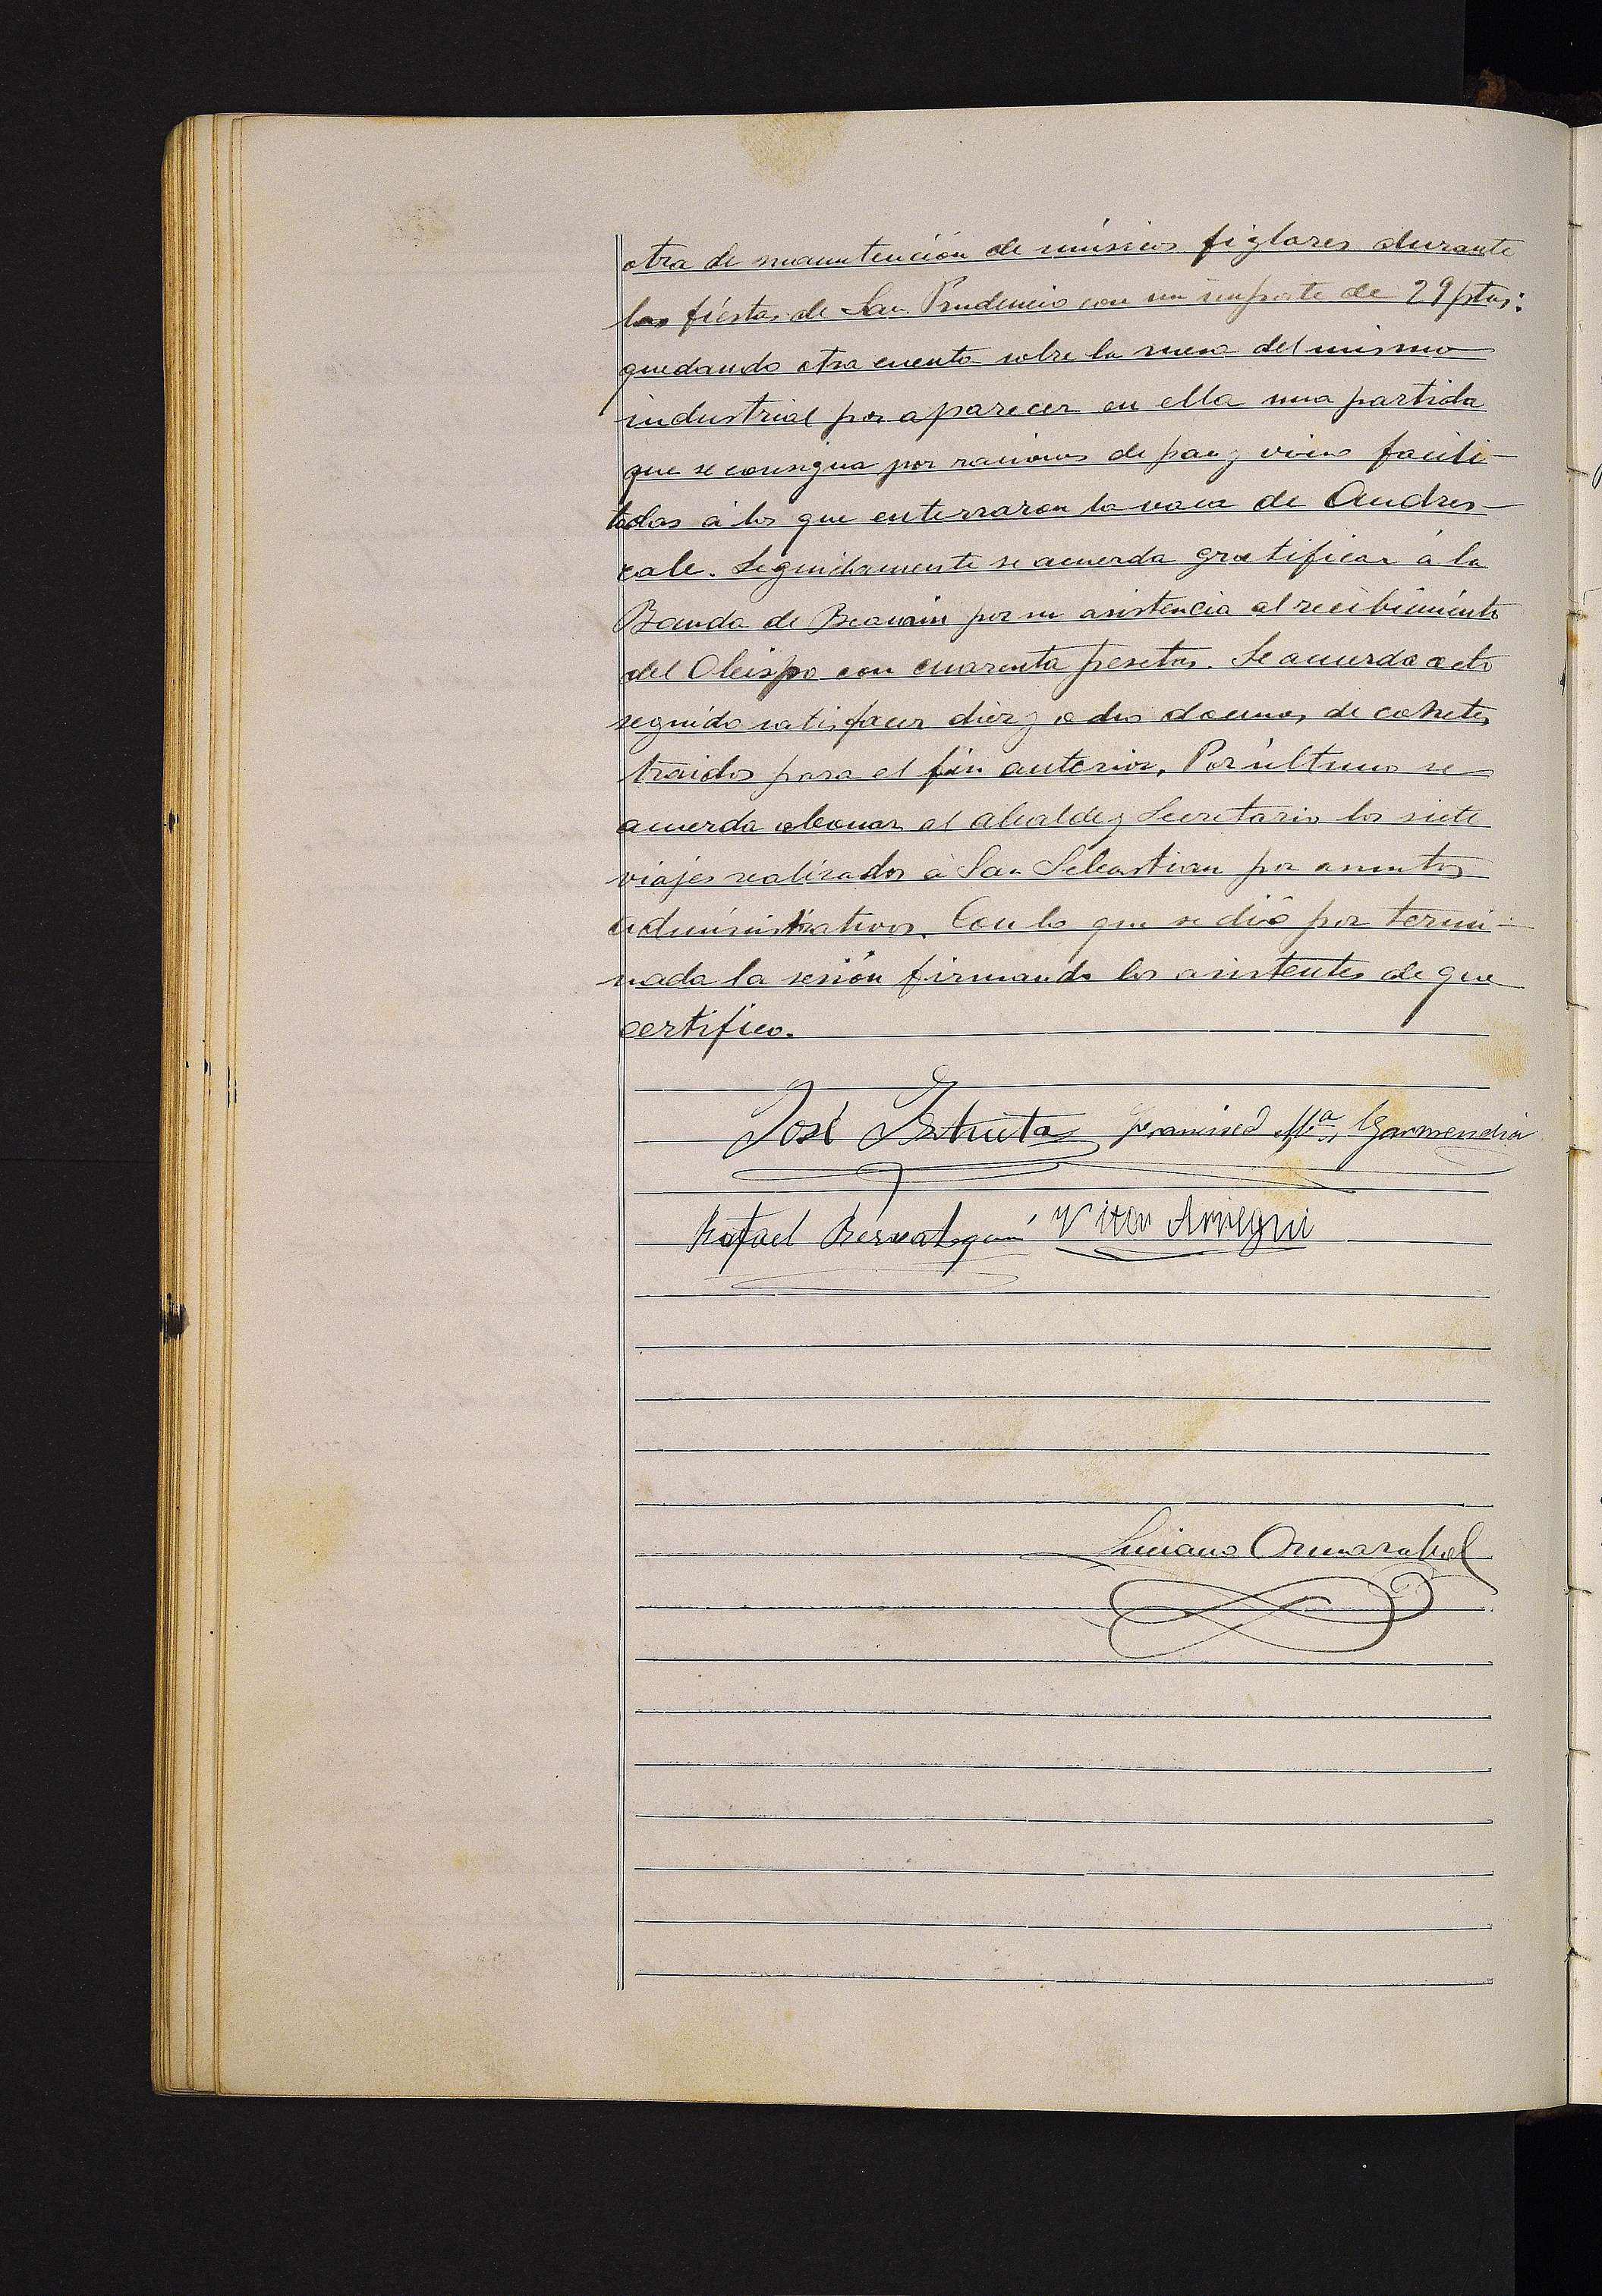 otra de manutención de músicos figlares durante
las fiestas de San Prudencio con un importe de 29 ptas:
quedando otra cuenta sobre la mesa del mismo
industrial por aparecer en ella una partida
que se consigna por raciones de pan y vino facili-
tadas á los que enterraron la vaca de Andres-
cale. Seguidamente se acuerda gratificar á la
Banda de Beasain por su asistencia al recibimiento
del Obispo con cuarenta pesetas. Se acuerda acto
seguido satisfacer diez y ocho docenas de cohetes
traidos para el fin anterior. Por último se
acuerda abonar al alcalde y Secretario los siete
viajes realizados á San Sebastian por asuntos
administrativos. Con lo que se dió por termi-
nada la sesión firmando los asistentes de que
certifico.
José Francisco Mª Garmendia
Rafael Vitor Arregui
Luciano